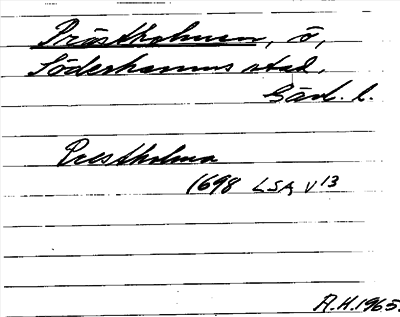 Prästholmen, ö,
Söderhamns stad,
Gävl. l.
Prestholma
1698 LSA V13
A.H. 1965.